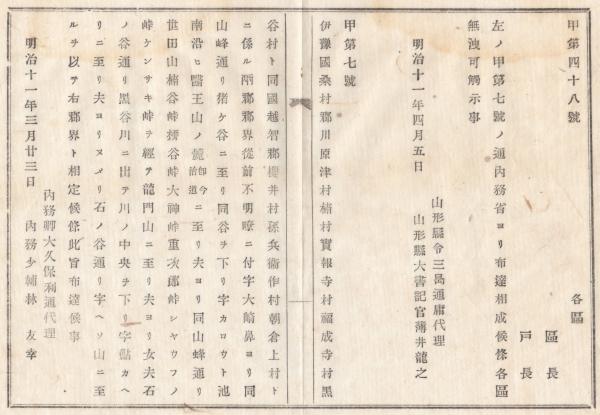 甲第四十八號
各區
區長
戸長
左ノ甲第七號ノ通內務省ヨリ布達相成候條各區
無洩可觸示事
明治十一年四月五日
山形縣令三島通庸代理
山形縣大書記官薄井龍之
甲第七號
伊豫國桑村郡川原津村楠村實報寺村福成寺村黑
谷村ト同國越智郡櫻井村孫兵衞作村朝倉上村ト
ニ係ル兩郡郡界從前不明瞭ニ付字大崎鼻ヨリ同
山峰通リ猪ケ谷ニ至リ同谷ヲ下リ字カロウト池
南沿ヒ醫王山ノ麓卽今治道ニ至リ夫ヨリ同山峰通リ
世田山楠谷峠 谷峠大神峠重次郞峠シヤウフノ
峠ケンサキ峠ヲ經テ龍門山ニ至リ夫ヨリ女夫石
ノ谷通リ黑谷川ニ出テ川ノ中央ヲ下リ字鮎カヘ
リニ至リ夫ヨリヌメリ石ノ谷通リ字ヘソ山ニ至
ルヲ以テ右郡界ト相定候條此旨布達候事
明治十一年三月廿三日
內務卿大久保利通代理
內務少輔林友幸